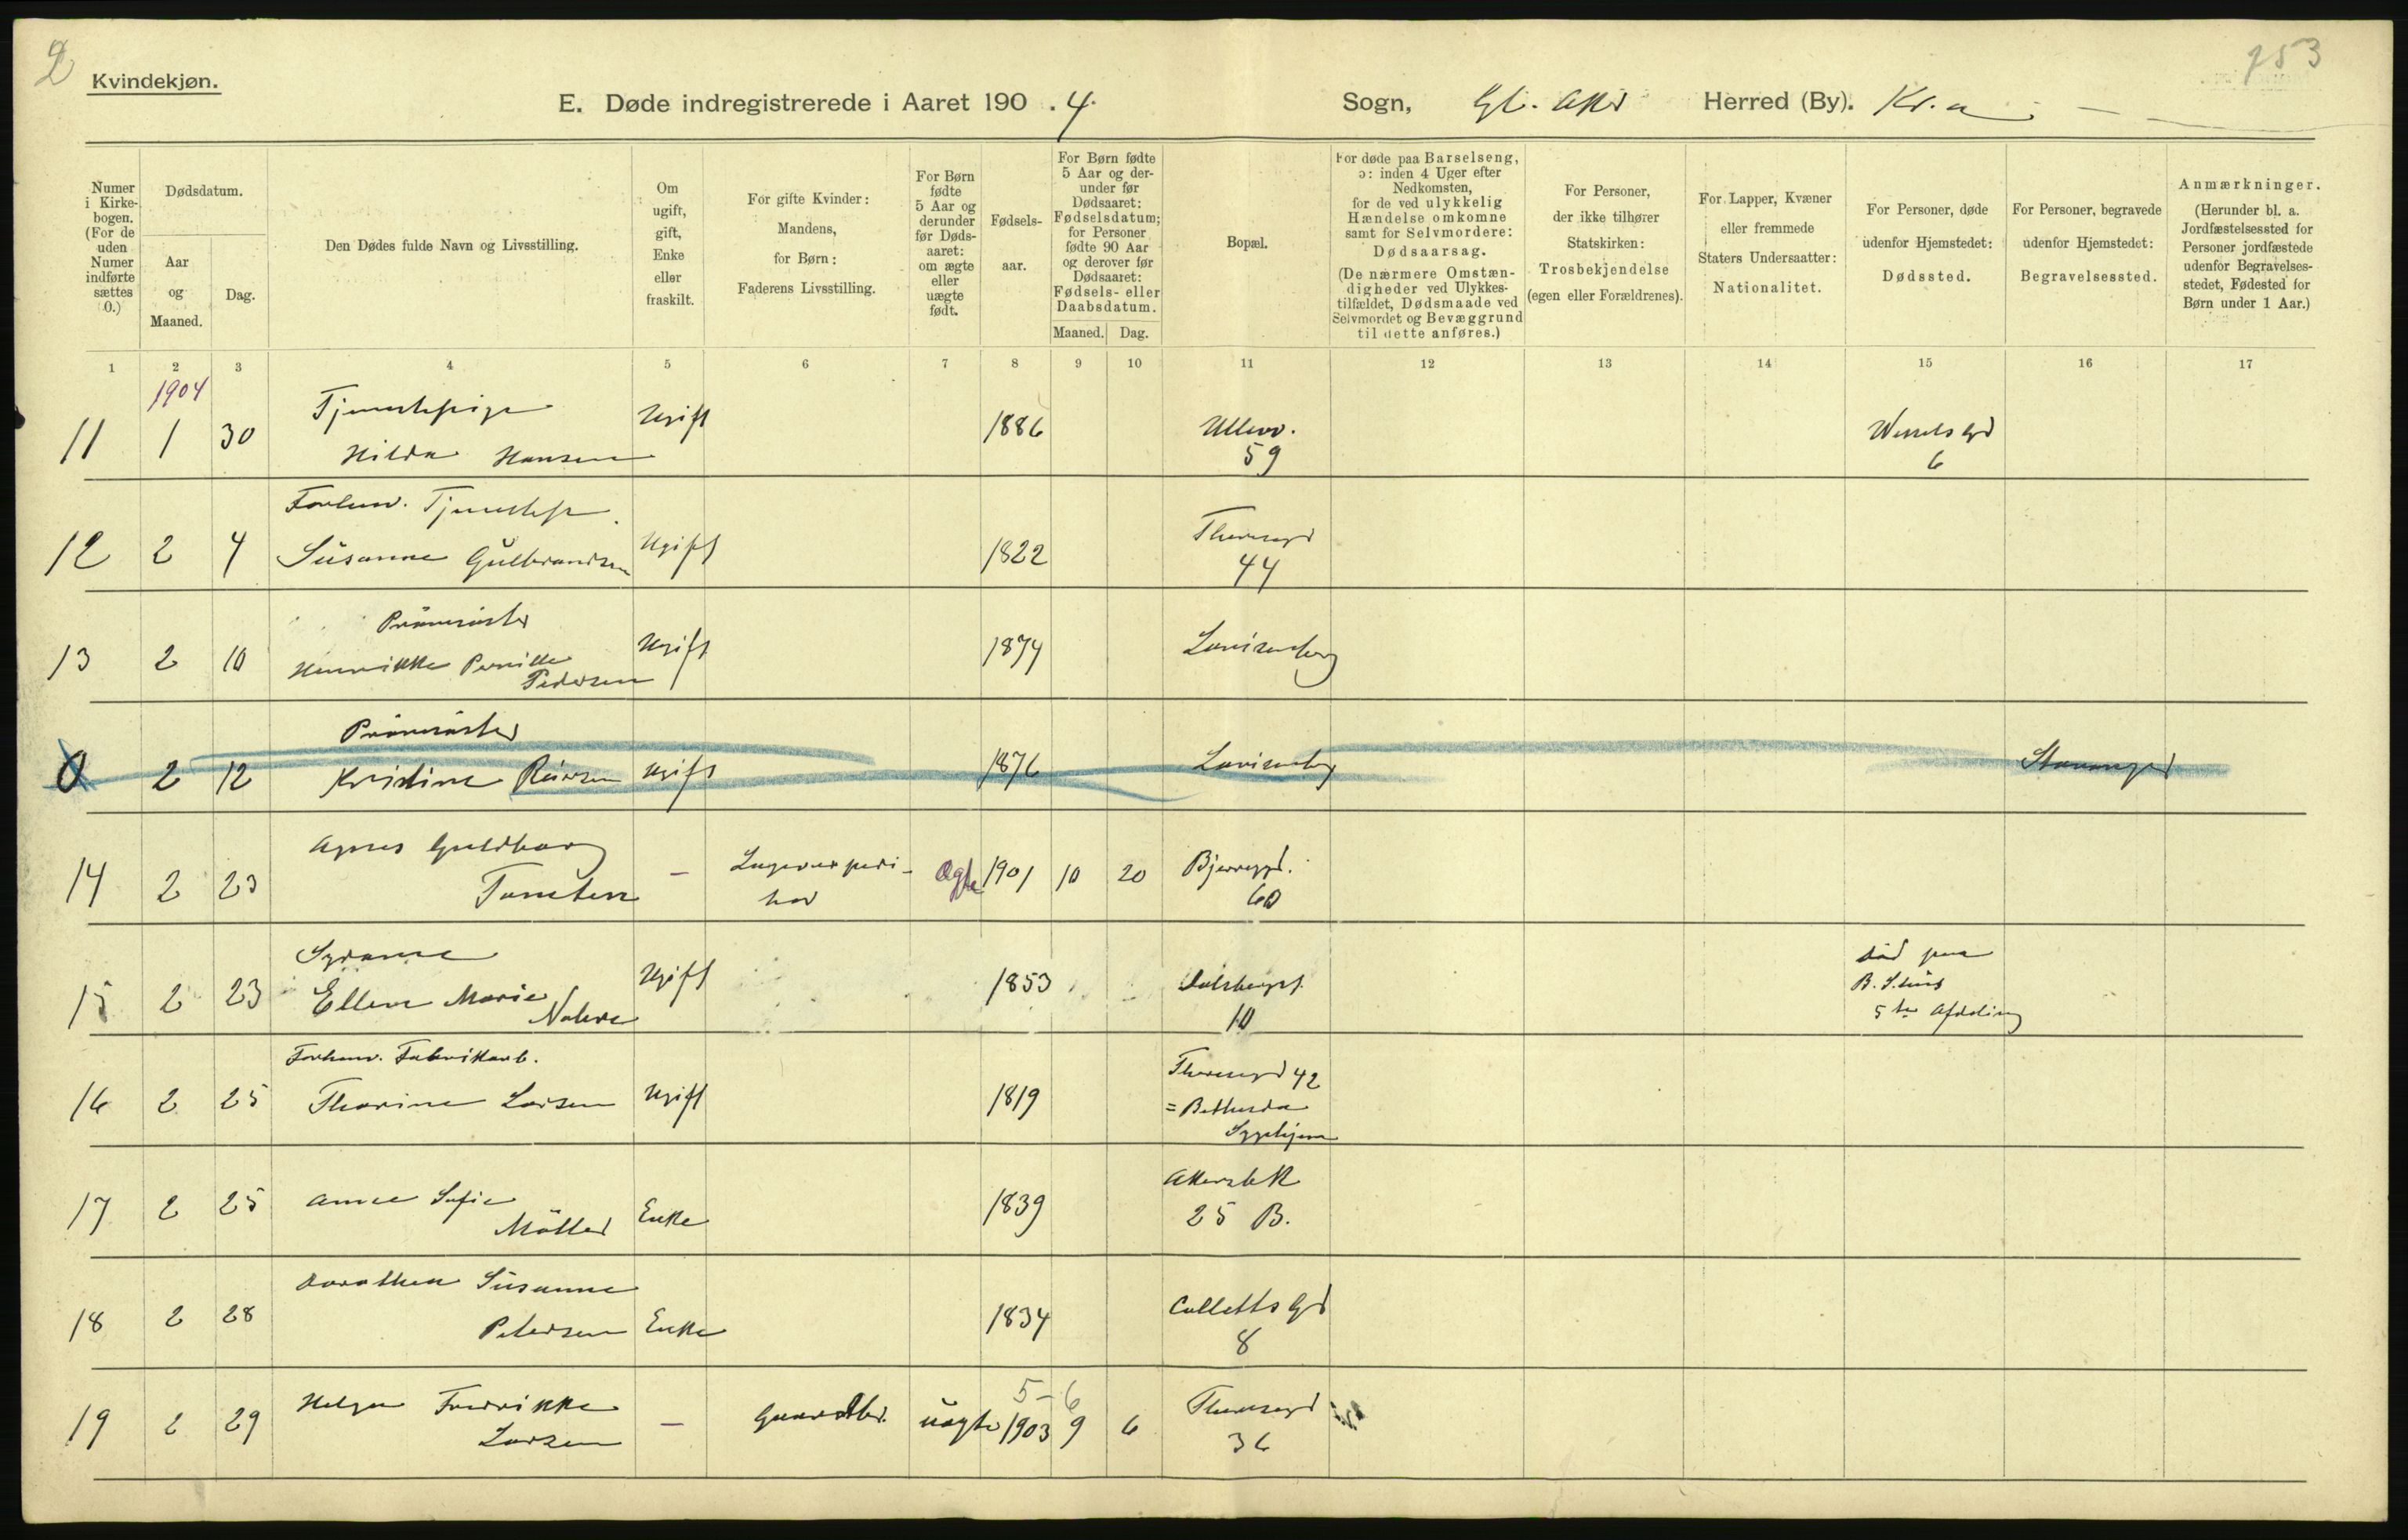 2
Kvindekjøn.
253
E. Døde indregistrerede i Aaret 190 . 4.
Sogn, Gl. Aker Herred (By). Kr.a
Numer i Kirkebogen. (For de uden Numer indførte sættes 0.)
Dødsdatum.
Aar og Maaned.
Dag.
Den Dødes fulde Navn og Livsstilling.
Om ugift, gift, Enke eller fraskilt.
For gifte Kvinder: Mandens, for Børn: Faderens Livsstilling.
For Børn fødte 5 Aar og derunder før Dødsaaret: om ægte eller uægte født.
Fødselsaar.
For Børn fødte 5 Aar og derunder før Dødsaaret: Fødselsdatum; for Personer fødte 90 Aar og derover før Dødsaaret: Fødsels- eller Daabsdatum.
Maaned. Dag.
Bopæl.
For døde paa Barselseng, ɔ: inden 4 Uger efter Nedkomsten, for de ved ulykkelig Hændelse omkomne samt for Selvmordere: Dødsaarsag. (De nærmere Omstændigheder ved Ulykkestilfældet, Dødsmaade ved Selvmordet og Bevæggrund til dette anføres.)
For Personer, der ikke tilhører Statskirken: Trosbekjendelse (egen eller Forældrenes).
For Lapper, Kvæner eller fremmede Staters Undersaatter: Nationalitet.
For Personer, døde udenfor Hjemstedet: Dødssted.
For Personer, begravede udenfor Hjemstedet: Begravelsessted.
Anmærkninger. (Herunder bl. a. Jordfæstelsessted for Personer jordfæstede udenfor Begravelsesstedet, Fødested for Børn under 1 Aar.)
1 2 3 4 5 6 7 8 9 10 11 12 13 14 15 16 17
1904
Tjenestepige
11 1 30 Hilda Hansen Ugift 1886 Ullev. 59 Wessels Gd 6
Forhenv. Tjenestep.
12 2 4 Susanne Gulbrandsen Ugift 1822 Theresegd 44
Prøvesøster
13 2 10 Henrikke Pernille Pedersen Ugift 1874 Lovisenberg
Prøvesøster
0 2 12 Kristine Reiersen Ugift 1876 Lovisenberg Stavanger
Agnes Guldborg
14 2 23 - Lagerexpeditør Ægte 1901 10 20 Bjerregd. 60
Syerske
15 2 23 Ellen Marie Ugift 1853 10 død paa B. 5te Afdeling
Forhenv. Fabrikarb.
16 2 25 Thorine Larsen Ugift 1819 Theresegd 42 = Bethesda Sygehjem
17 2 25 Anne Sofie Möller Enke 1839 Akersbk 25 B.
Dorothea Susanne
18 2 28 Petersen Enke 1834 Colletts Gd 8
5-6
19 2 29 Helga Fredrikke Larsen - uægte 1903 9 6 Theresegd 36